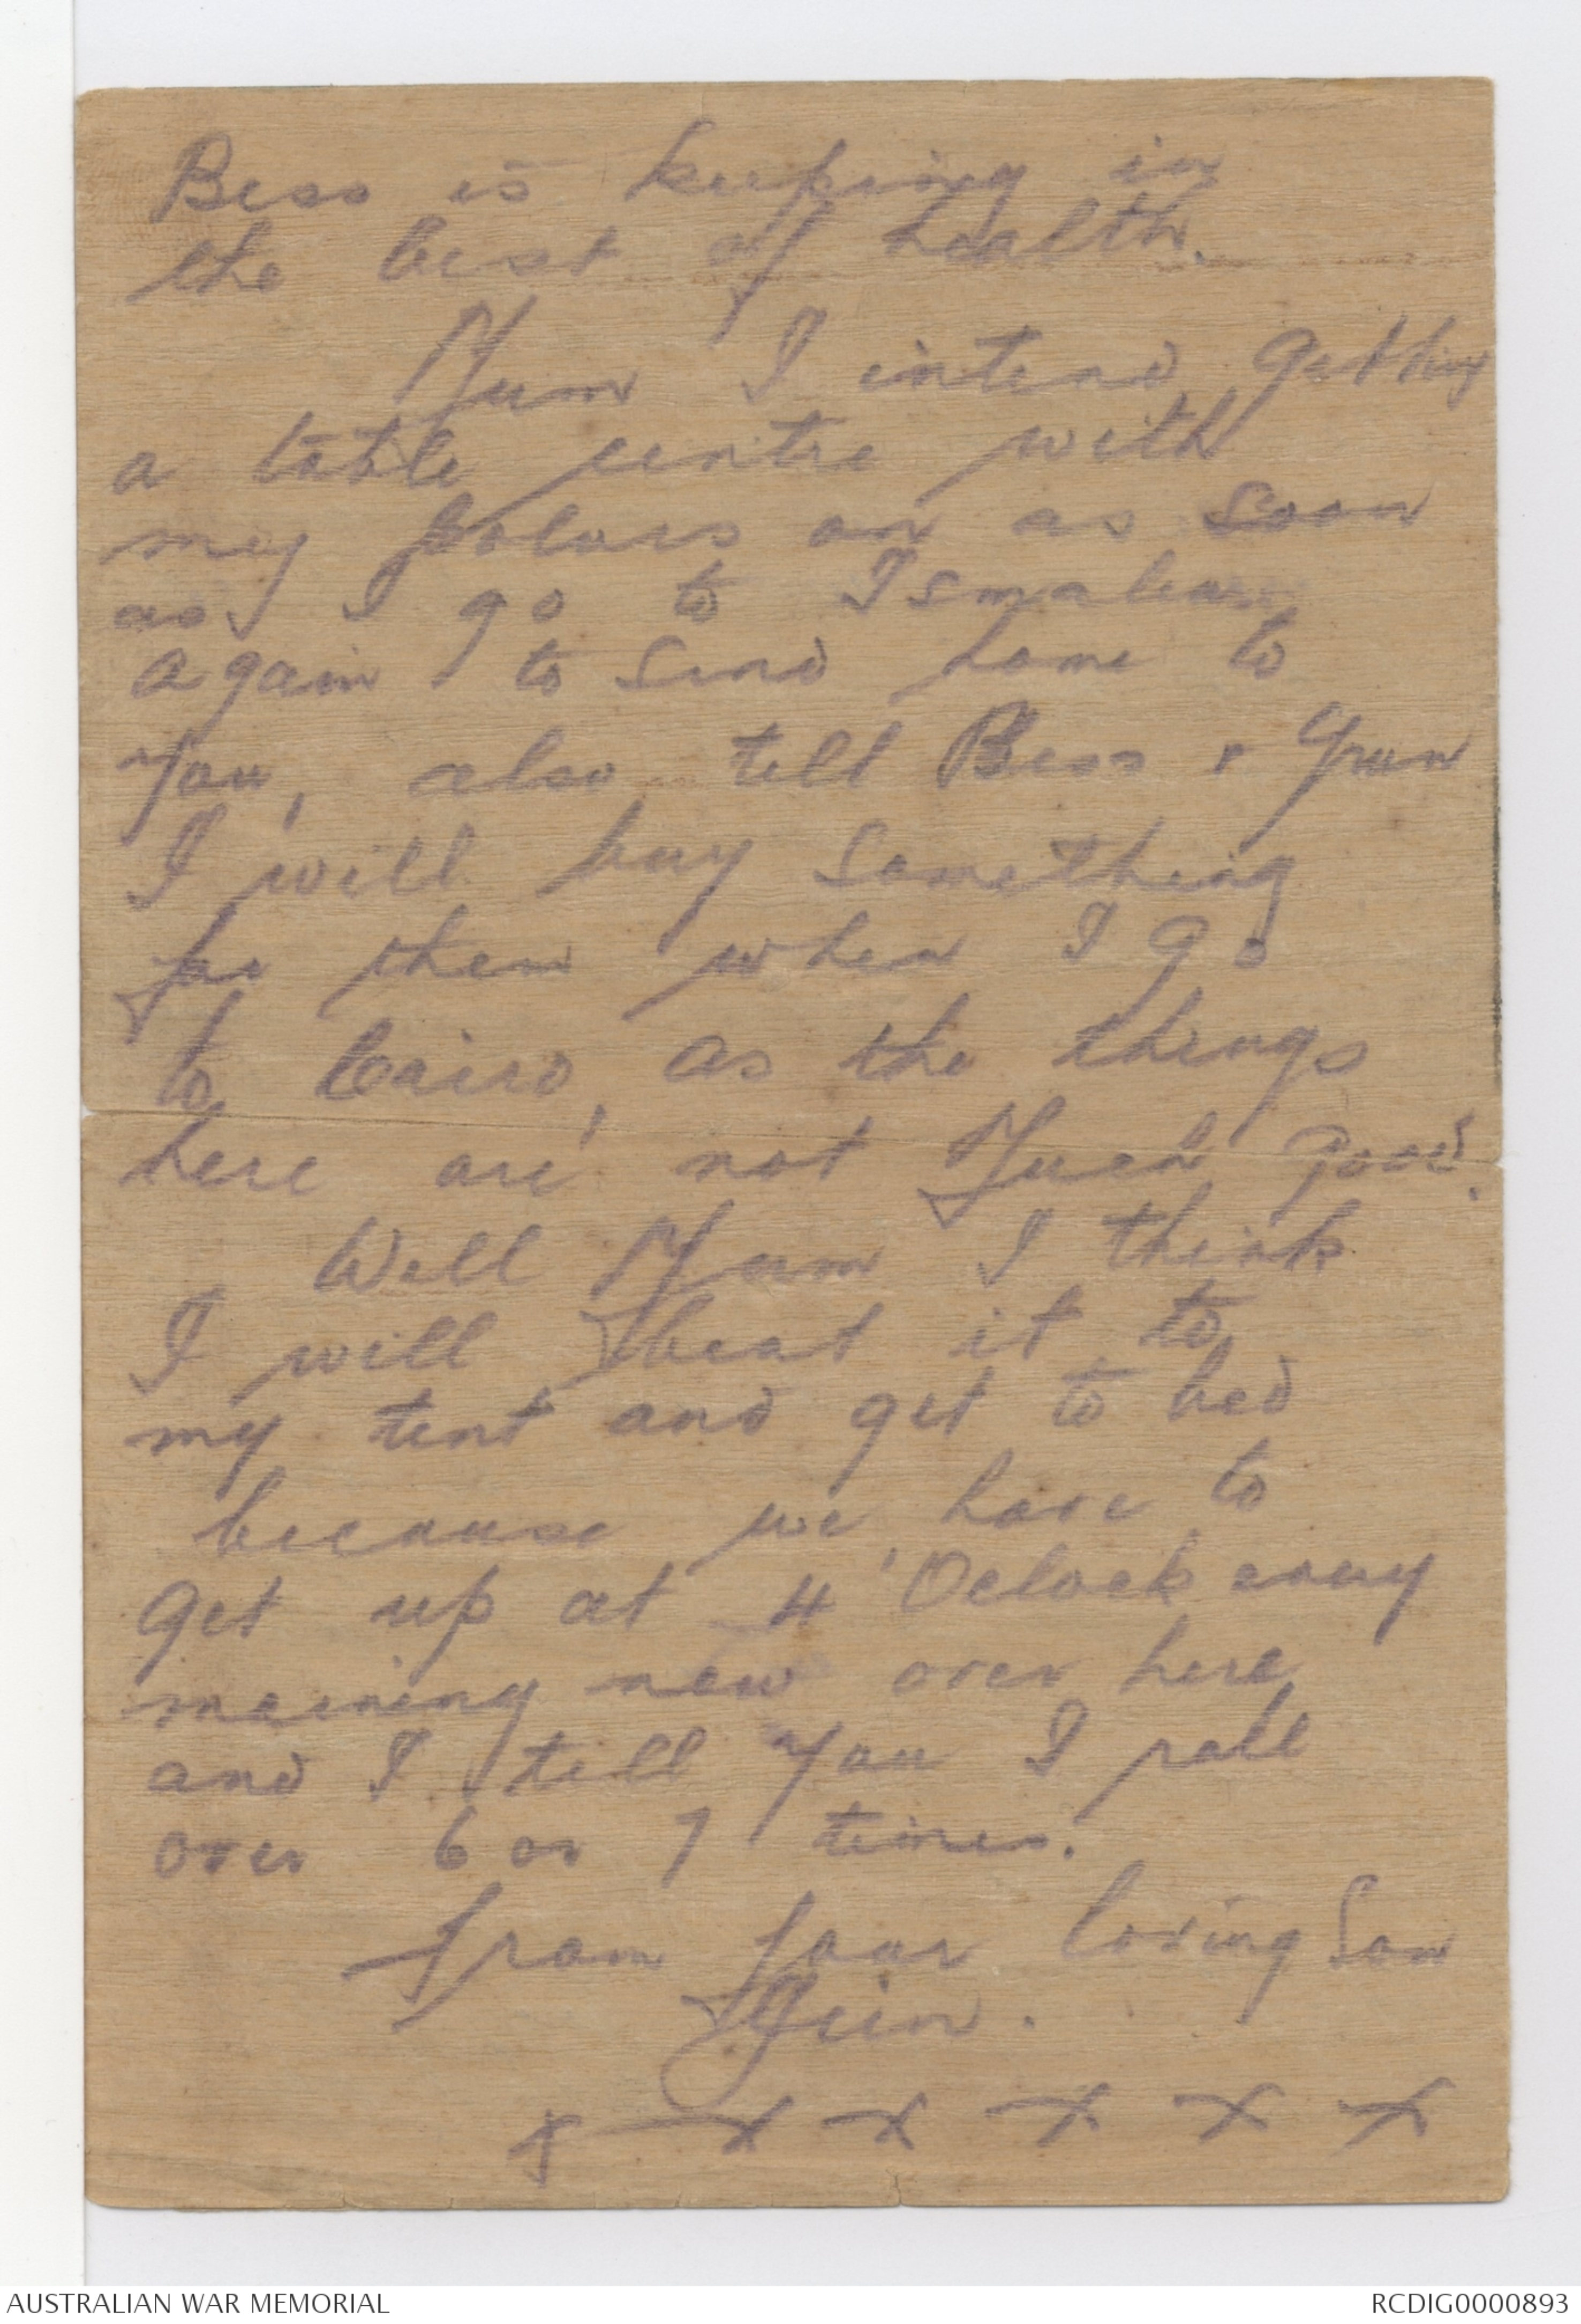 Bess is keeping in
the best of health.
Mum I intend getting
a table centre with
my Colours on as soon
as I go to Ismalea
again to send home to
you, also tell Bess &
I will buy something
for them when I go
to Cairo, as the things
here are not Much good.
Well Mum I think
I will beat it to
my tent and get to bed
because we have to
get up at 4 'Oclock every
morning now over here
and I tell you I roll
over 6 or 7 times.
from your loving Son
x x x x x x
AUSTRALIAN WAR MEMORIAL
RCDIG0000893